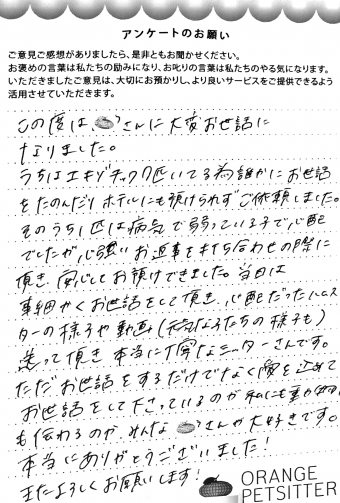 アンケートのお願い
ご意見ご感想がありましたら、是非ともお聞かせください。
お褒めの言葉は私たちの励みになり、お叱りの言葉は私たちのやる気になります。
いただきましたご意見は、大切にお預かりし、より良いサービスをご提供できるよう
活用させていただきます。
この度は、さんに大変お世話に
なりました。
うちはエキゾチック7匹いてる為誰かにお世話
をたのんだり ホテルにも預けられず ご依頼しました。
そのうち1匹は病気で弱っている子で、心配
でしたが、心強いお返事を打ち合わせの際に
頂き 安心してお預けできました。当日は
事細やくお世話をして頂き、心配だったハムス
ターの様子や動画(元気な子たちの様子も)
送って頂き 本当に丁寧なシッターさんです。
ただ お世話をするだけでなく 愛を込めて
お世話をして下さっているのが 私にも動物
も伝わるのか、みんな さんが大好きです。
本当にありがとうございました!
またよろしくお願いします!
ORANGE
PETSITTER